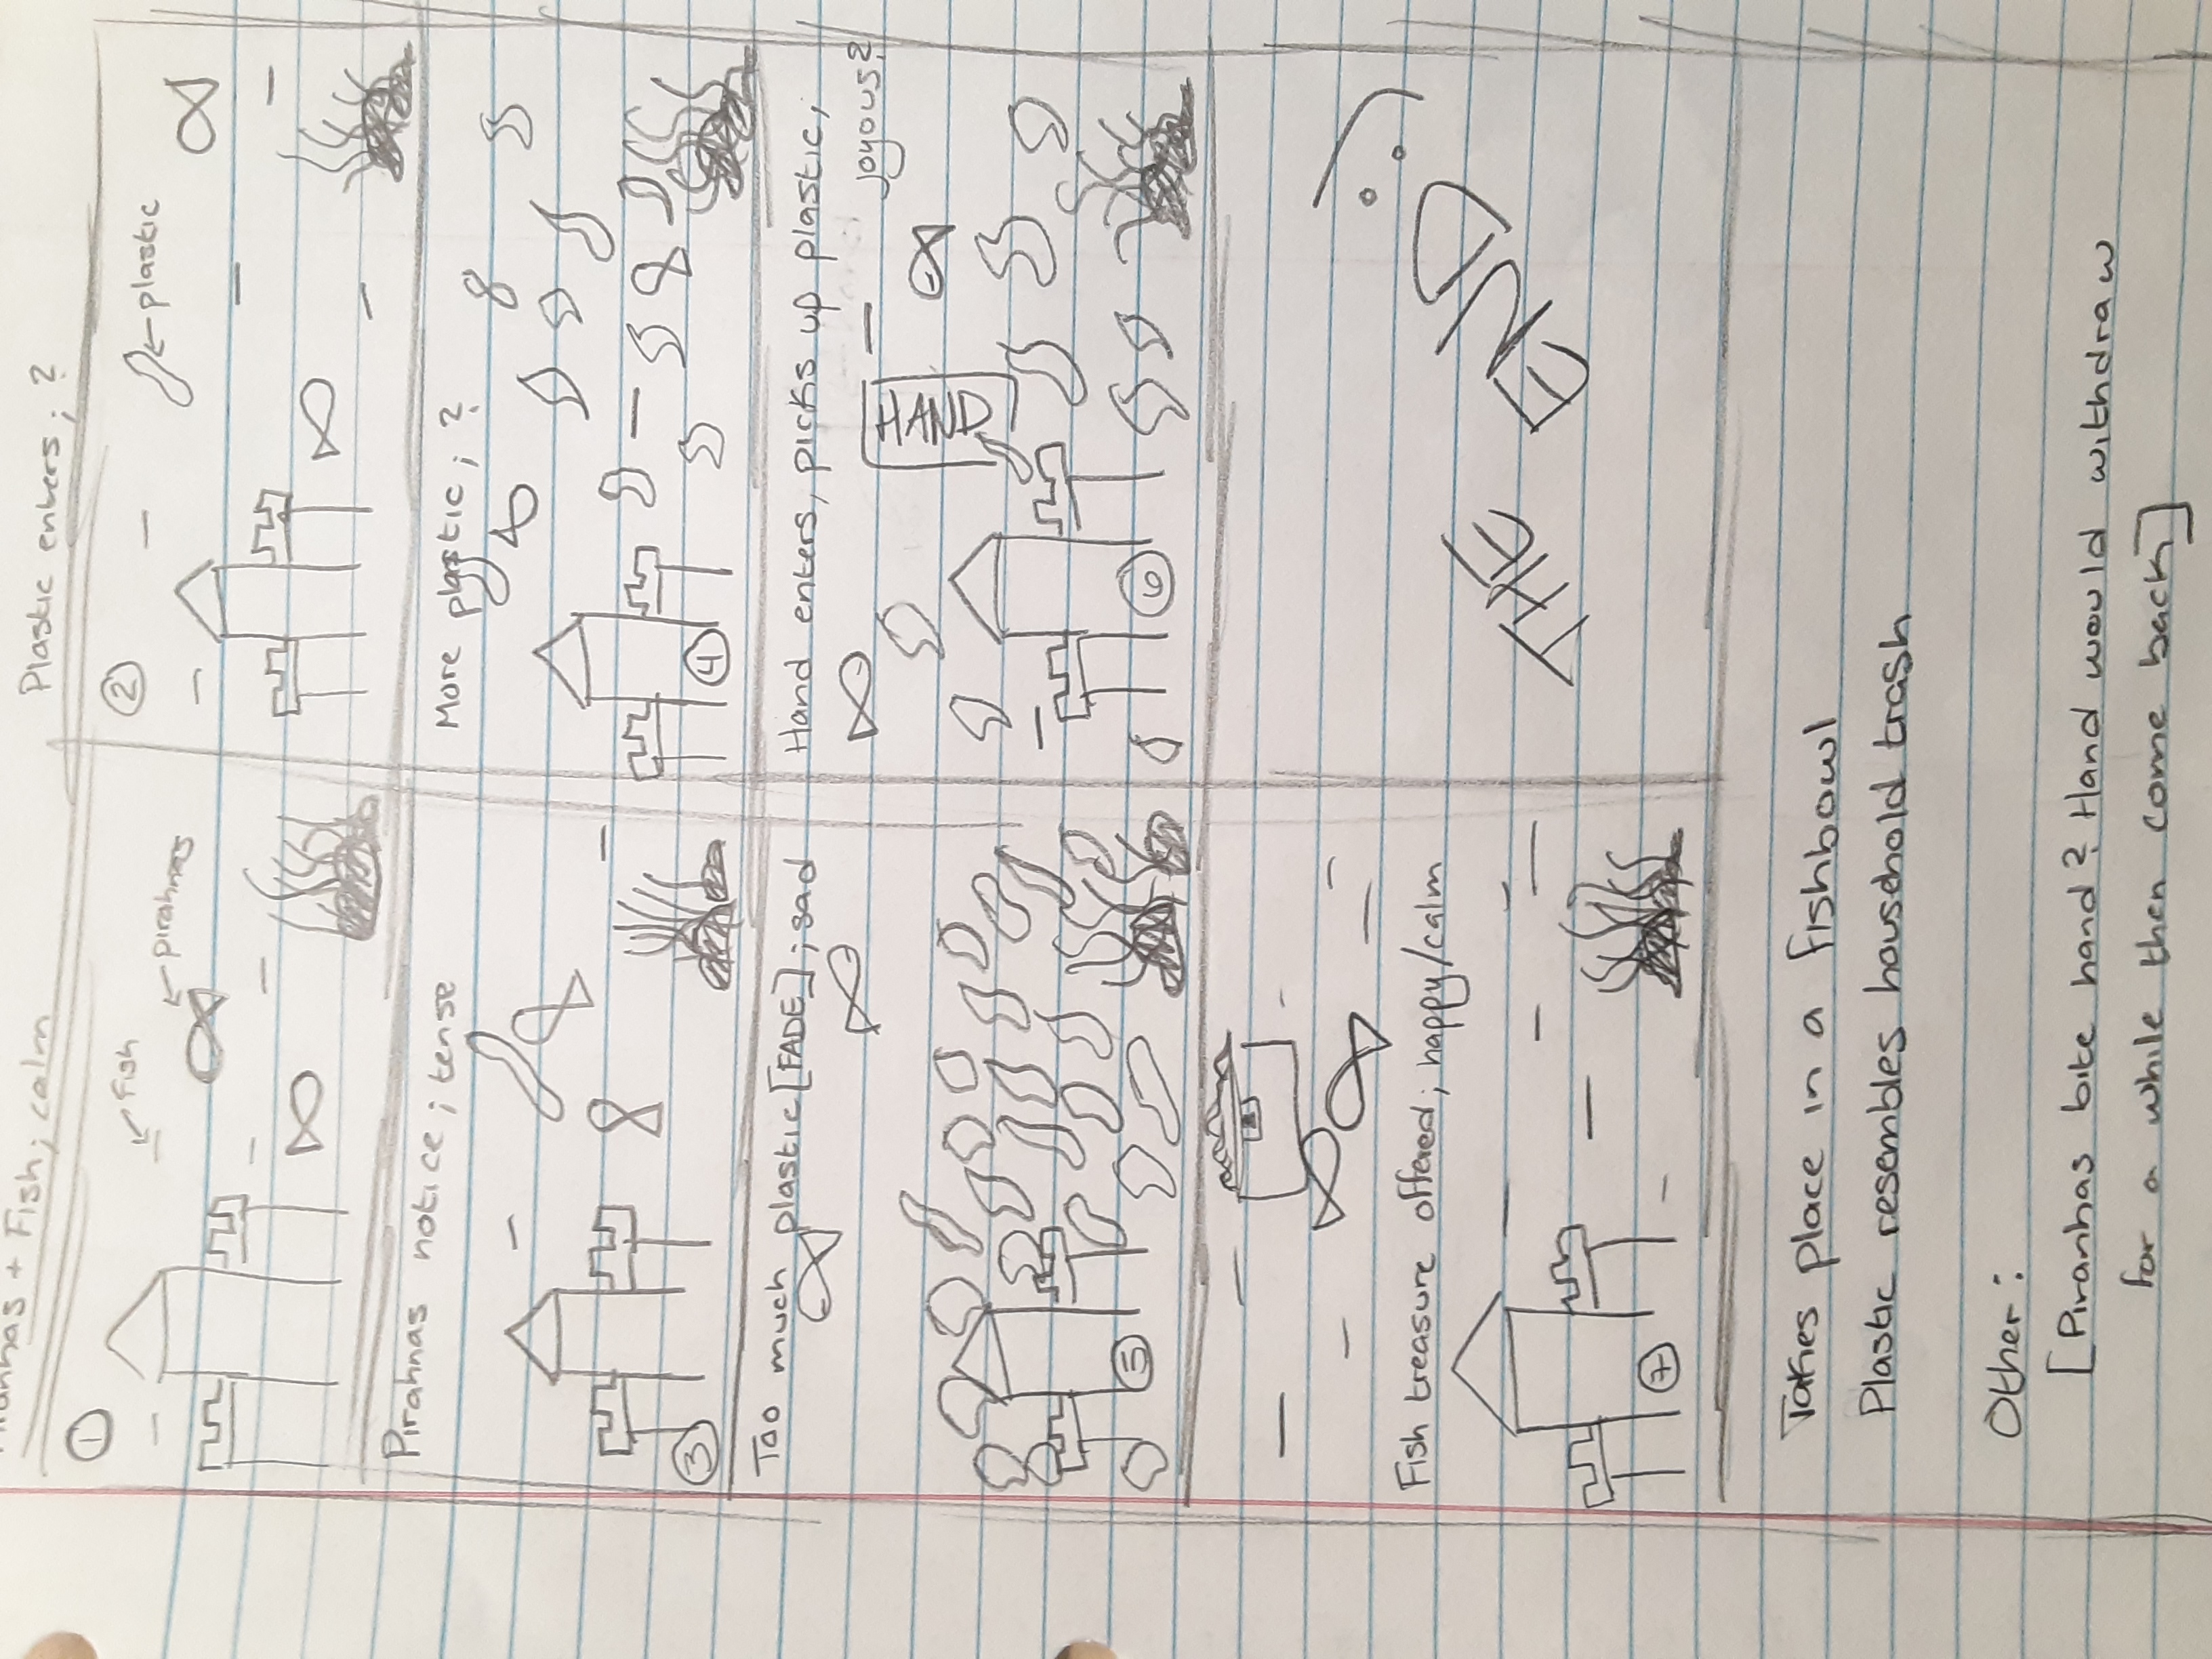 Piranhas + Fish; calm
Plastic enters; ?
①
Fish
pirahnas
②
plastic
Pirahnas notice; tense
③
More plastic; ?
④
Too much plastic [FADE]; sad
⑤
Hand enters, picks up plastic;
joyous?
HAND
⑥
Fish treasure offered; happy/calm
⑦
THE END :)
Takes place in a fishbowl
Plastic resembles household trash
Other:
[Piranhas bite hand? Hand would withdraw
for a while then come back]